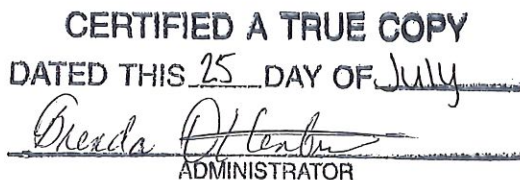 CERTIFIED A TRUE COPY
DATED THIS 25 DAY OF July
Brenda
ADMINISTRATOR